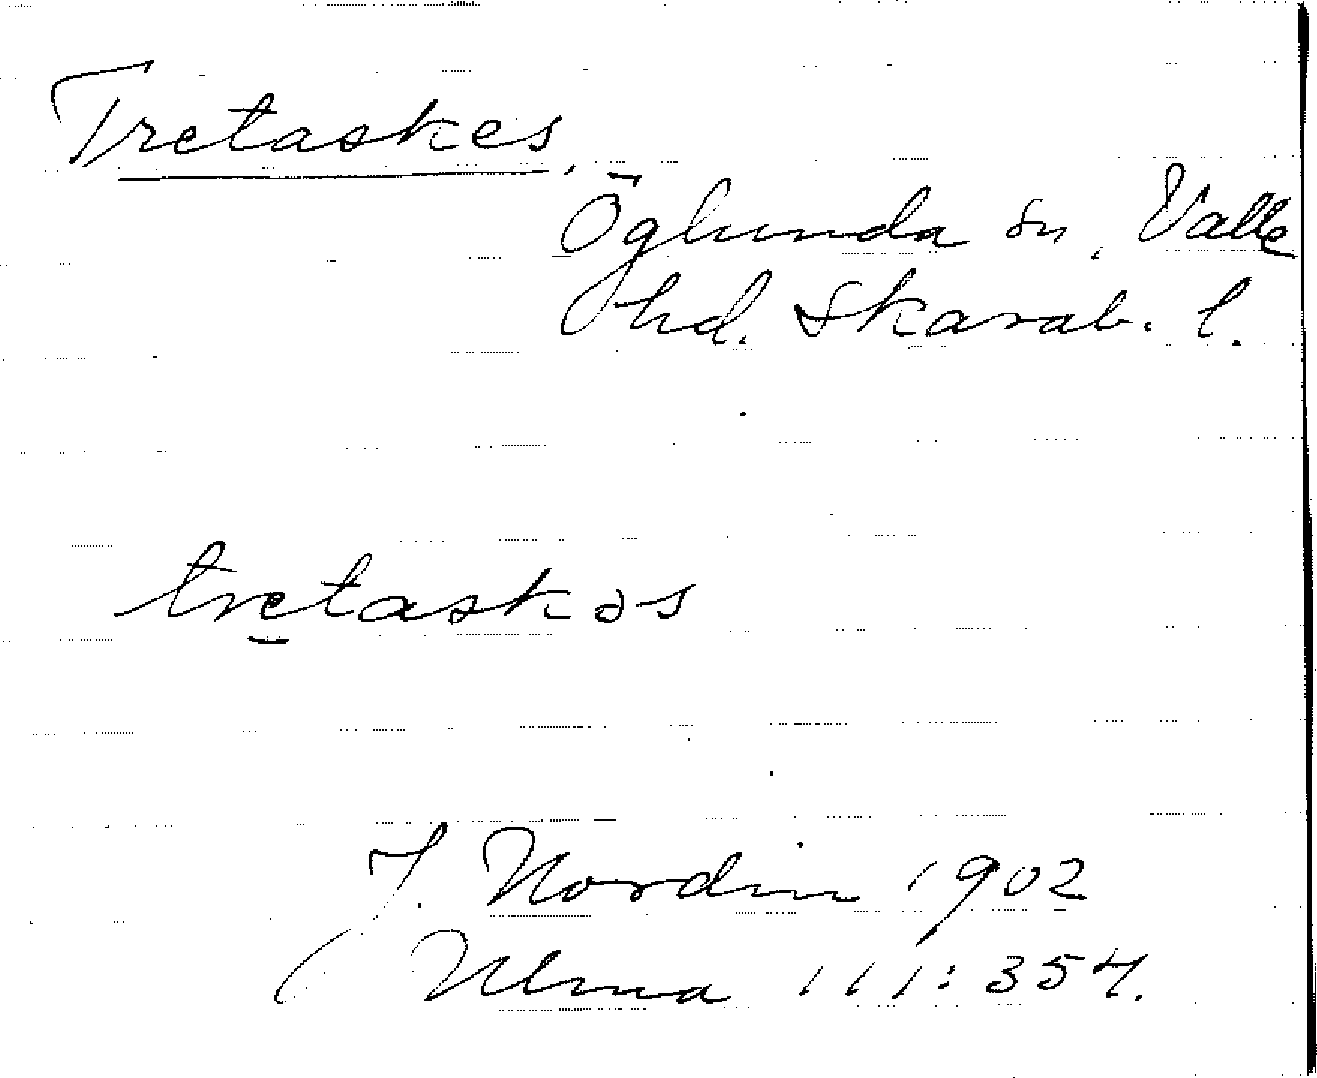 Tretaskes.
Öglunda sn, Valle
hd. Skarab. l.
tretaskəs
J. Nordin 1902
(Ulma 111:354.